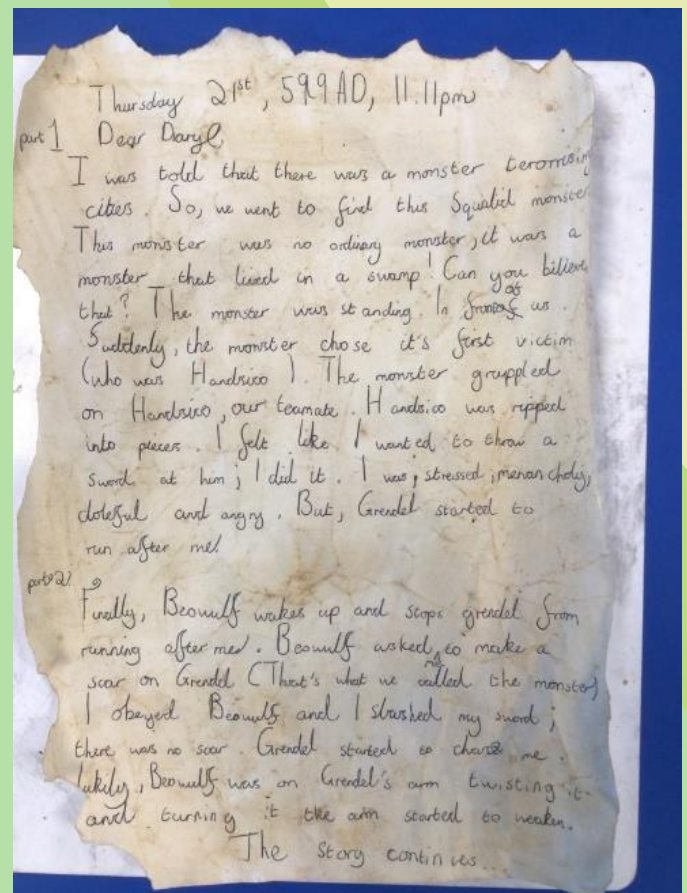 Thursday 21st, 599 AD, 11.11pm
part 1 Dear Daryl
I was told that there was a monster terorrising
cities. So, we went to find this Squalid monster
This monster was no ordinary monster, it was a
monster that lived in a swamp! Can you bilieve
that? The monster was standing. In front of us.
Suddenly, the monster chose it's first victim
(who was Handsico). The monster grappled
on Handsico, our teamate. Handsico was ripped
into pieces. I felt like I wanted to throw a
sword at him; I did it. I was; stressed, menancholy,
doleful and angry. But, Grendel started to
run after me!
part 2
Finally, Beowulf wakes up and stops grendel from
running after me!. Beowulf asked me to make a
scar on Grendel (That's what we called the monster)
I obeyed Beowulf and I slashed my sword;
there was no scar. Grendel started to chase me.
lukily, Beowulf was on Grendel's arm twisting it
and turning it the arm started to weaken.
The story continues...